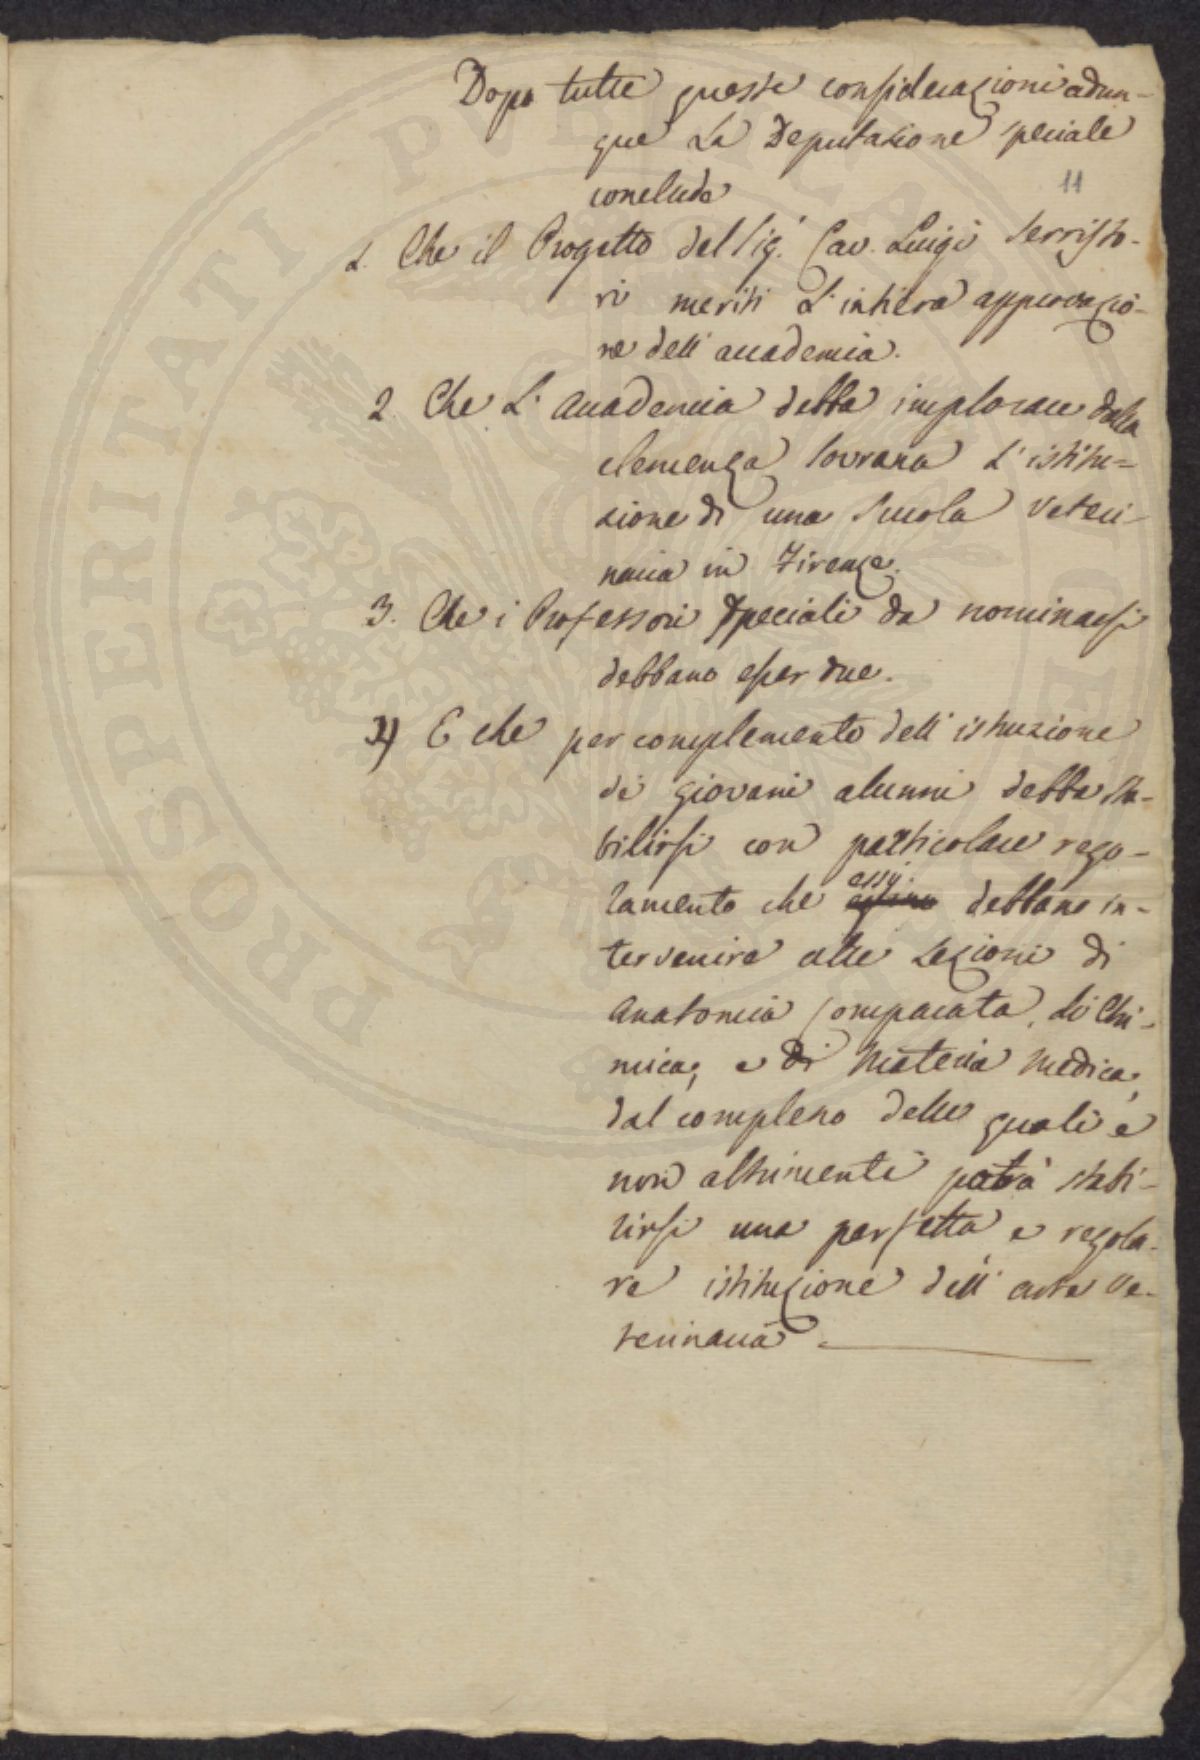 Dopo tutte queste considerazioni adun-
que La Deputazione speciale
11
conclude
1. Che il Progetto del Sig.r Cav. Luigi Serristo-
ri meriti L'intiera approvazio-
ne dell'accademia.
2. Che L'accademia debba implorare dalla
clemenza Sovrana L'istitu-
zione di una Scuola Veteri-
naria in Firenze.
3. Che i Professori Speciali da nominarsi
debbano esser due.
4) E che per complemento dell'istruzione
de giovani alunni debba sta-
bilirsi con particolare rego-
lamento che essi debbano in-
tervenire alle Lezioni di
Anatomia Comparata, di Chi-
mica, e di Materia Medica,
dal complesso delle quali e
non altrimenti potrà stabi-
lirsi una perfetta, e regola-
re istituzione dell'arte Ve-
terinaria.
PROSPERITATI PUBLICAE